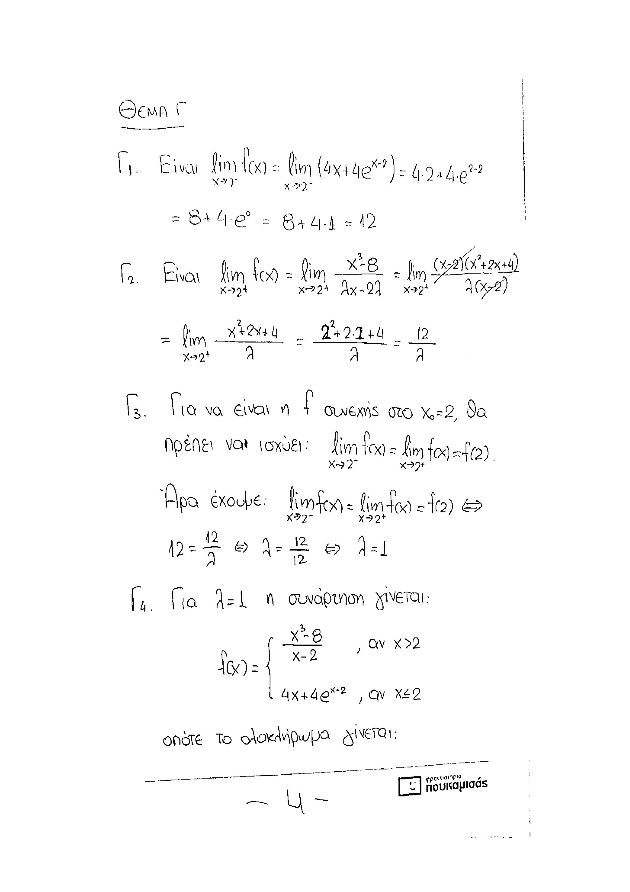 Θεμα Γ
Γ1. Είναι lim_{x→2⁻} f(x) = lim_{x→2⁻} (4x+4e^{x-2}) = 4·2+4·e^{2-2}
= 8+4·e⁰ = 8+4·1 = 12
Γ2. Είναι lim_{x→2⁺} f(x) = lim_{x→2⁺} (x³-8)/(λx-2λ) = lim_{x→2⁺} (x-2)(x²+2x+4)/λ(x-2)
= lim_{x→2⁺} (x²+2x+4)/λ = (2²+2·2+4)/λ = 12/λ
Γ3. Για να είναι η f συνεχής στο x₀=2, θα
πρέπει να ισχύει: lim_{x→2⁻} f(x) = lim_{x→2⁺} f(x) = f(2).
Άρα έχουμε: lim_{x→2⁻} f(x) = lim_{x→2⁺} f(x) = f(2) ⇔
12 = 12/λ ⇔ λ = 12/12 ⇔ λ=1
Γ4. Για λ=1 η συνάρτηση γίνεται:
f(x) = { (x³-8)/(x-2) , αν x>2
4x+4e^{x-2} , αν x≤2
οπότε το ολοκλήρωμα γίνεται:
φροντιστήριο
πουκαμισάς
- 4 -